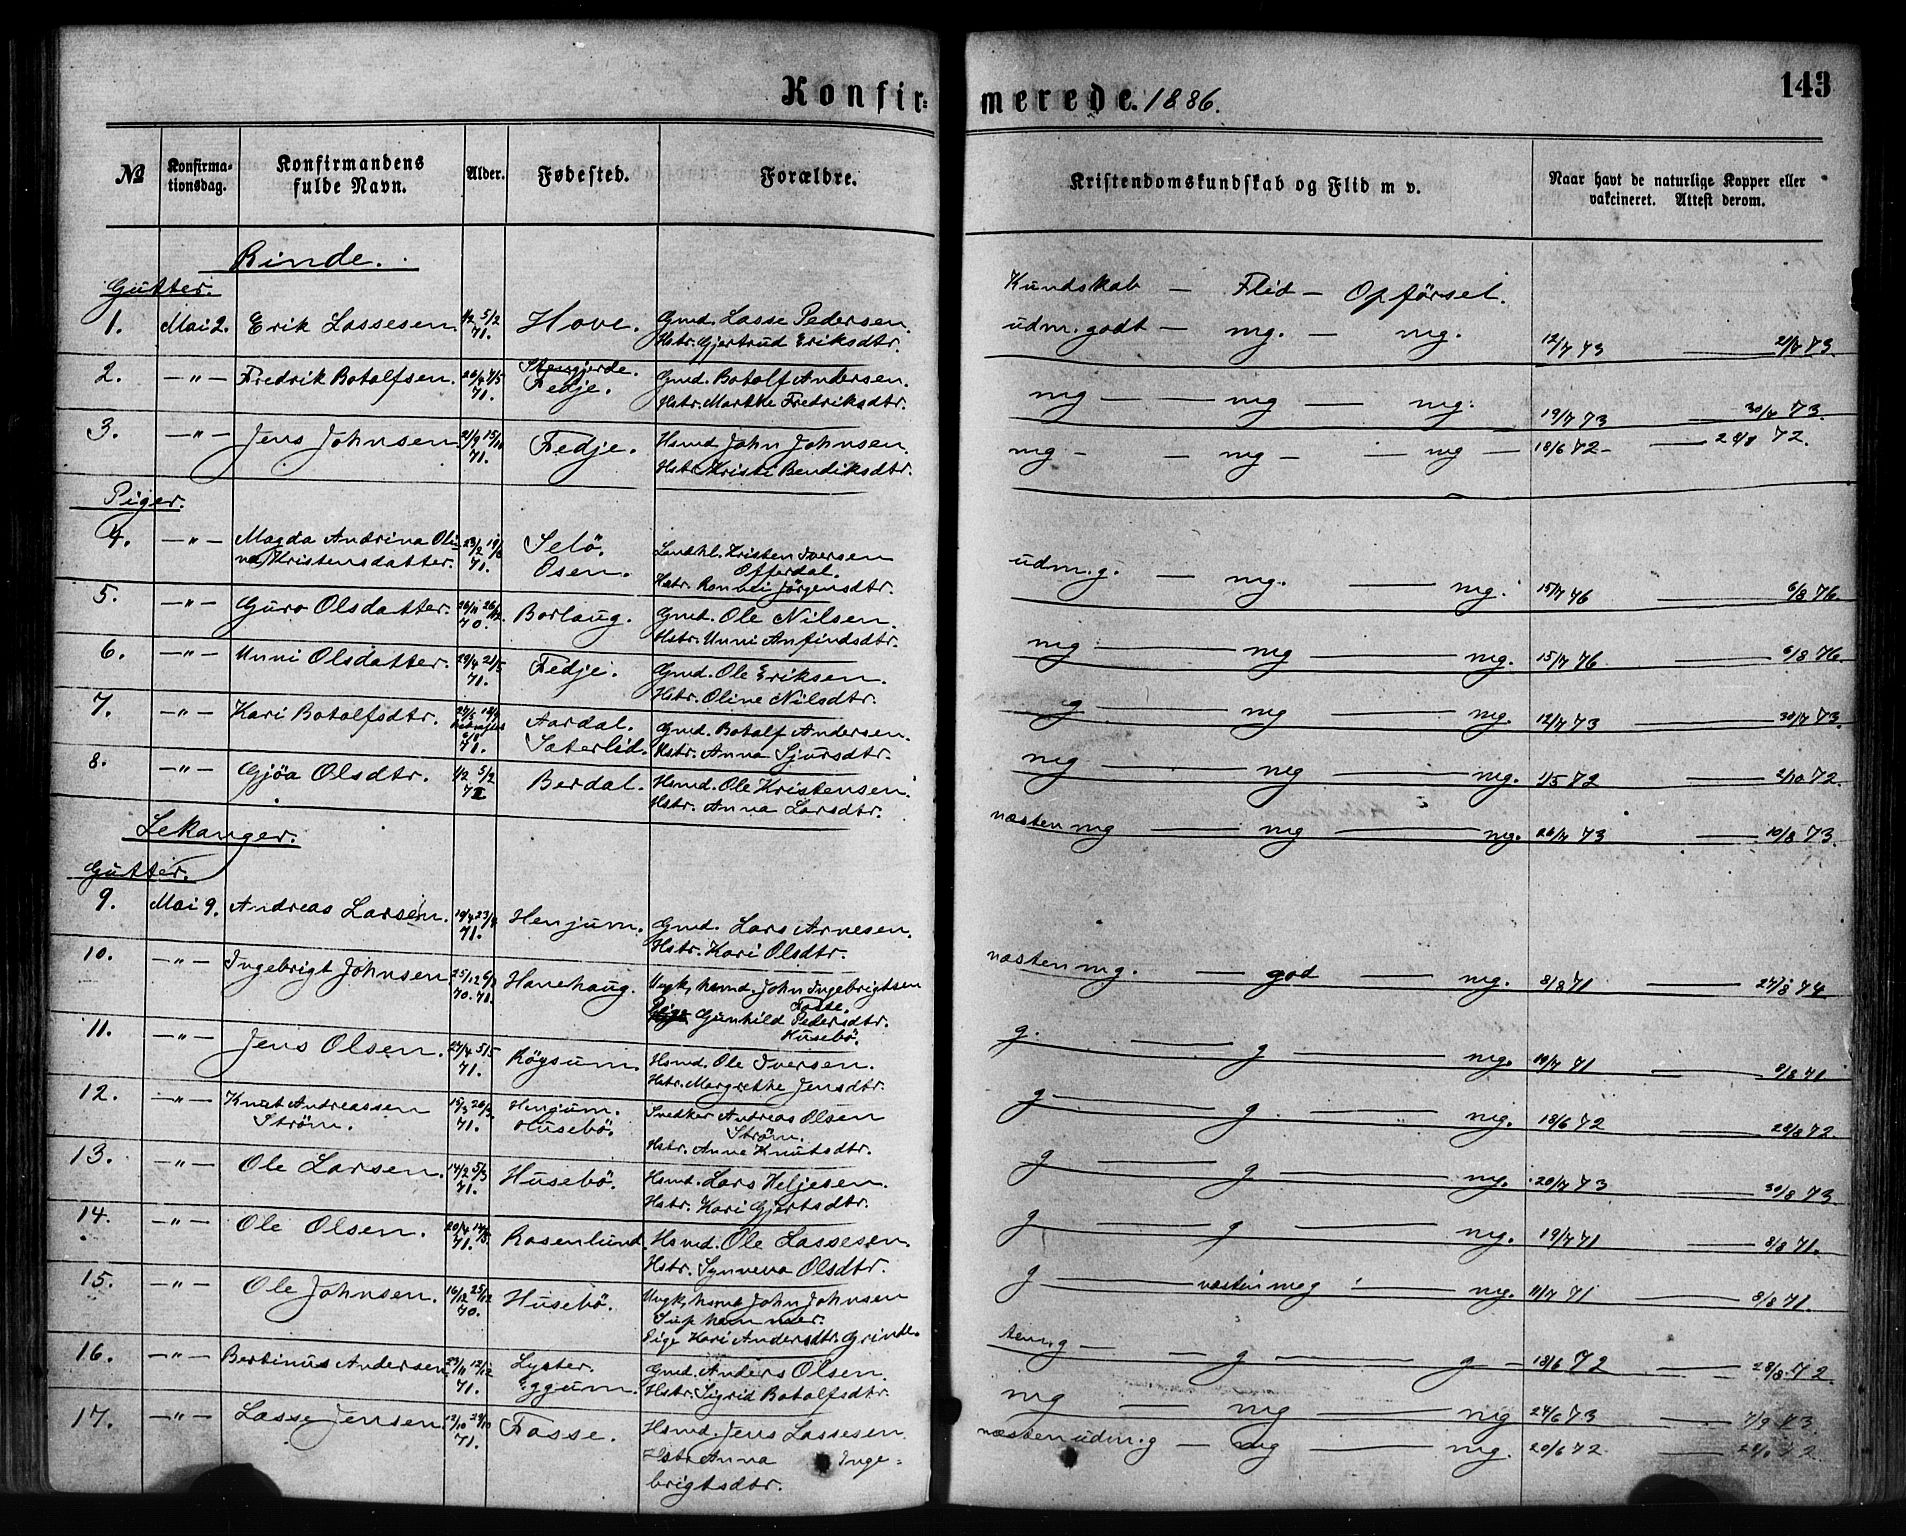 Konfirmerede. 1886.
143
№
Konfirmationsdag.
Konfirmandens fulde Navn.
Alder.
Fødested.
Forældre.
Kristendomskundskab og Flid m v.
Naar havt de naturlige Kopper eller vakcineret. Attest derom.
Rinde.
Gutter.
Kundskab — Flid — Opförsel.
1. Mai 2. Erik Lassesen. 4/2 5/2 71. Hove. Gmd. Lasse Pedersen. Hstr. Gjertrud Eriksdtr. udm. godt — mg. — mg. 12/7 73 — 21/7 73.
2. —"— Fredrik Botolfsen. 26/4 7/5 71. Stengjerde. Fedje. Gmd. Botolf Andersen. Hstr. Marthe Fredriksdtr. mg — mg — mg. 19/7 73 — 30/7 73.
3. —"— Jens Johnsen 21/9 15/10 71. Fedje. Hsmd John Johnsen. Hstr. Kristi Bendiksdtr. mg — mg — mg — 18/6 72 — 28/8 72.
Piger.
4. —"— Magda Andrina Olina Kristensdatter. 23/2 19/3 71. Selö. Osen. Landhl. Kristen Iversen Offerdal. Hstr. Ronnei Jörgensdtr. udm. g. — mg. — mg. 15/7 76 — 6/8 76.
5. —"— Guro Olsdatter. 26/11 26/12 70. Borlaug. Gmd. Ole Nilsen. Hstr. Unni Anfindsdtr. mg — mg — mg. 15/7 76 — 6/8 76
6. —"— Unni Olsdatter. 29/4 21/5 71. Fedje. Gmd. Ole Eriksen. Hstr. Oline Nilsdtr. g — mg — mg. 12/7 73 — 30/7 73.
7. —"— Kari Botolfsdtr. 71. Aardal. Sæterlid. Gmd. Botolf Andersen. Hstr. Anna Sjursdtr. mg — mg — mg. 1/5 72 — 2/10 72
8. —"— Gjöa Olsdtr. 1/2 5/2 71 Berdal. Hsmd. Ole Kristensen. Hstr. Anna Larsdtr. næsten mg — mg — mg. 26/7 73 — 10/8 73.
Lekanger.
Gutter.
9. Mai 9. Andreas Larsen. 19/4 23/4 71. Henjum. Gmd. Lars Arnesen. Hstr. Kari Olsdtr. næsten mg. — god — mg. 8/8 71 — 27/8 74
10. —"— Ingebrigt Johnsen 25/12 6/1 70. 71. Hanehaug. Ungk, hsmd. John Ingebrigtsen Fosse. Pige Gunhild Pedersdtr. Husebö. g. — g — mg. 19/7 71 — 8/8 71
11. —"— Jens Olsen. 27/4 5/5 71. Röysum. Hsmd. Ole Iversen. Hstr. Margrethe Jensdtr. g — g. — mg. 18/6 72 — 28/8 72.
12. —"— Knut Andreassen Ström. 15/3 26/3 71. Henjum. Husebö. Snedker Andreas Olsen Ström. Hstr. Anne Knutsdtr. g — g. — mg. 20/7 73 — 30/8 73
13. —"— Ole Larsen. 14/2 5/3 71. Husebö. Hsmd. Lars Heljesen. Hstr. Kari Gjertsdtr. g — g — mg. 19/7 71 — 8/8 71.
14. —"— Ole Olsen. 20/4 14/5 71. Rosenlund. Hsmd. Ole Lassesen. Hstr. Synneva Olsdtr. g — næsten meg — mg. 11/7 71 — 8/8 71.
15. —"— Ole Johnsen. 16/12 25/12 70. Husebö. Ungk, hsmd John Johnsen Suphammer. Pige Kari Andersdtr. Grinde. tem. g — g — g — 18/6 72 — 28/8 72.
16. —"— Bertinus Andersen 23/11 12/12 71. Lyster. Eggum. Gmd. Anders Olsen. Hstr. Sigrid Botolfsdtr mg — mg — mg 24/6 73 — 7/9 73.
17. —"— Lasse Jensen. 12/10 29/10 71. Fosse. Hsmd. Jens Lassesen. Hstr. Anna Ingebrigtsdtr. næsten udm. g — mg — mg. 20/6 72 — 28/8 72.